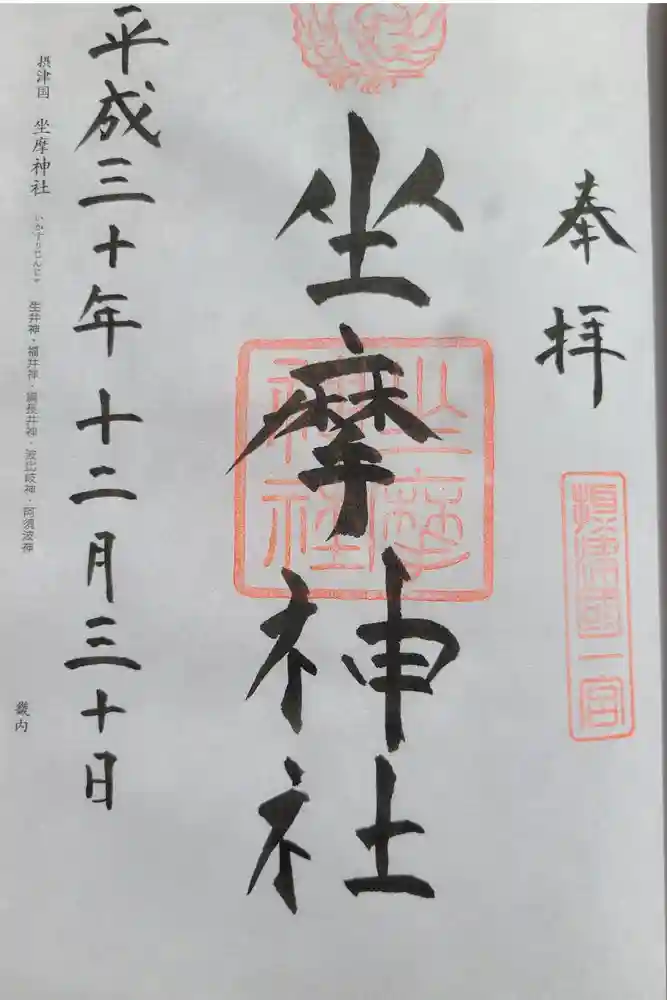 奉拝
摂津國一宮
坐摩神社
坐摩神社
平成三十年十二月三十日
摂津国 坐摩神社 いかすりじんじゃ 生井神・福井神・綱長井神・波比岐神・阿須波神
畿内